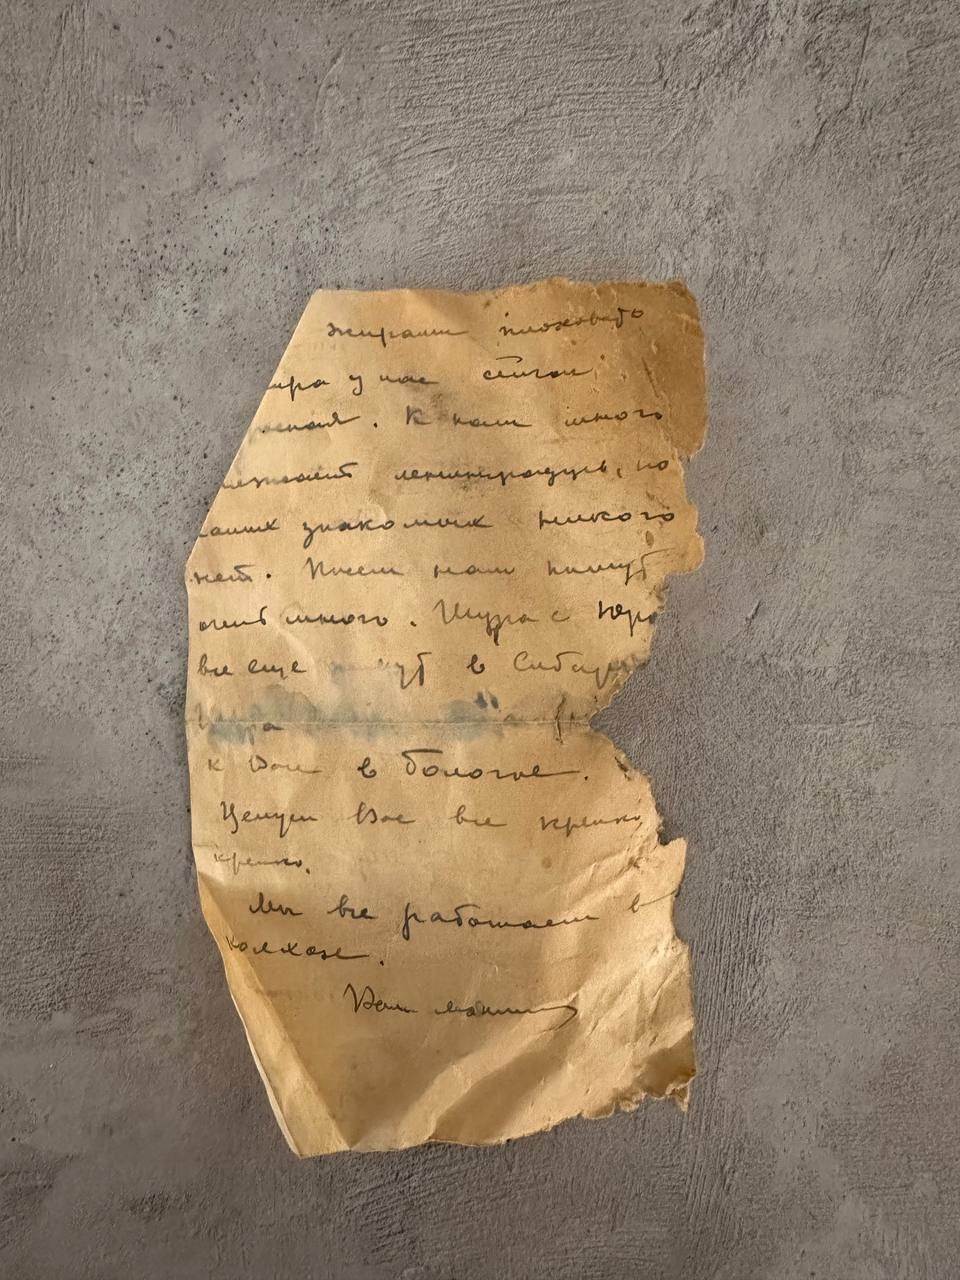 жирами плоховато
ира у нас стоит
расная. К нам много
езжает ленинградцев, но
наших знакомых никого
нет. Писем нам пишут
очень много. Шура с Юро
все еще живут в Сибири
к Вам в Бологое.
Целуем Вас все крепко
крепко.
Мы все работаем в
колхозе.
Ваш